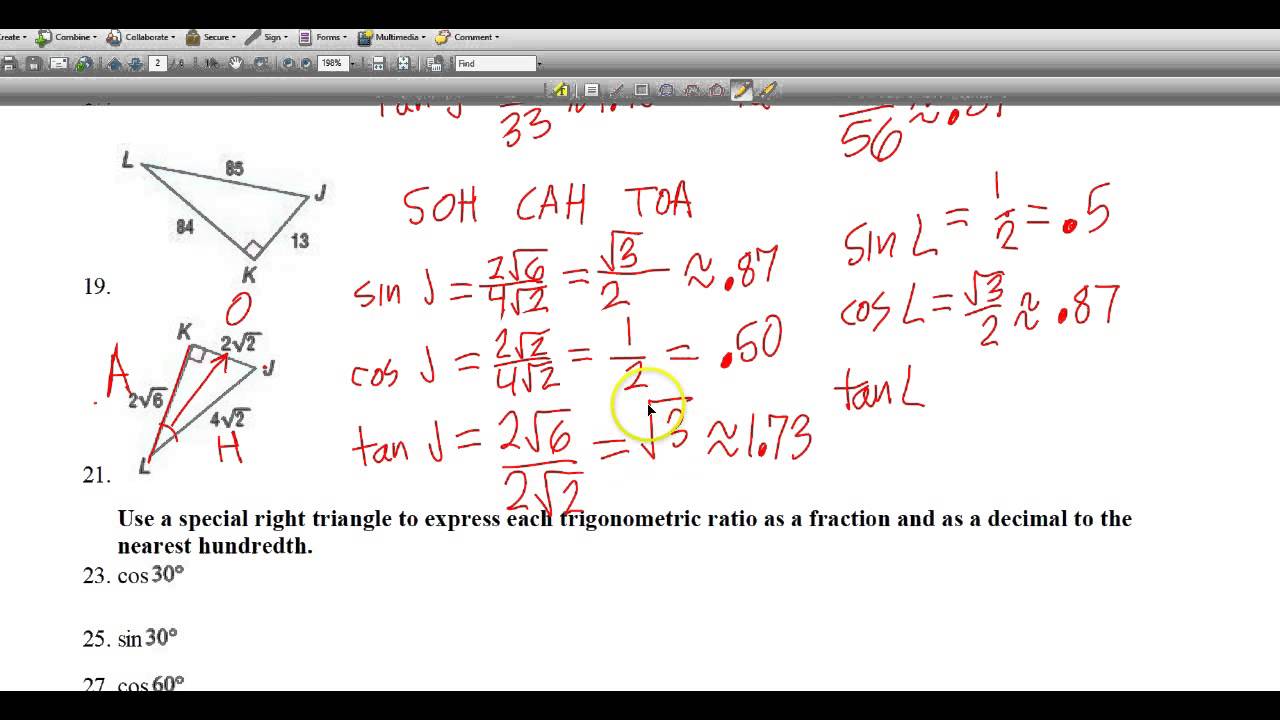 Create Combine Collaborate Secure Sign Forms Multimedia Comment
2 / 8 198% Find
tan J
33
56
L 85 J
84 13
K
19.
SOH CAH TOA
sin J = 2√6/4√2 = √3/2 ≈ .87
cos J = 2√2/4√2 = 1/2 = .50
tan J = 2√6/2√2 = √3 ≈ 1.73
sin L = 1/2 = .5
cos L = √3/2 ≈ .87
tan L
O
K 2√2 J
A
2√6 4√2
H
L
21.
Use a special right triangle to express each trigonometric ratio as a fraction and as a decimal to the
nearest hundredth.
23. cos 30°
25. sin 30°
27. cos 60°